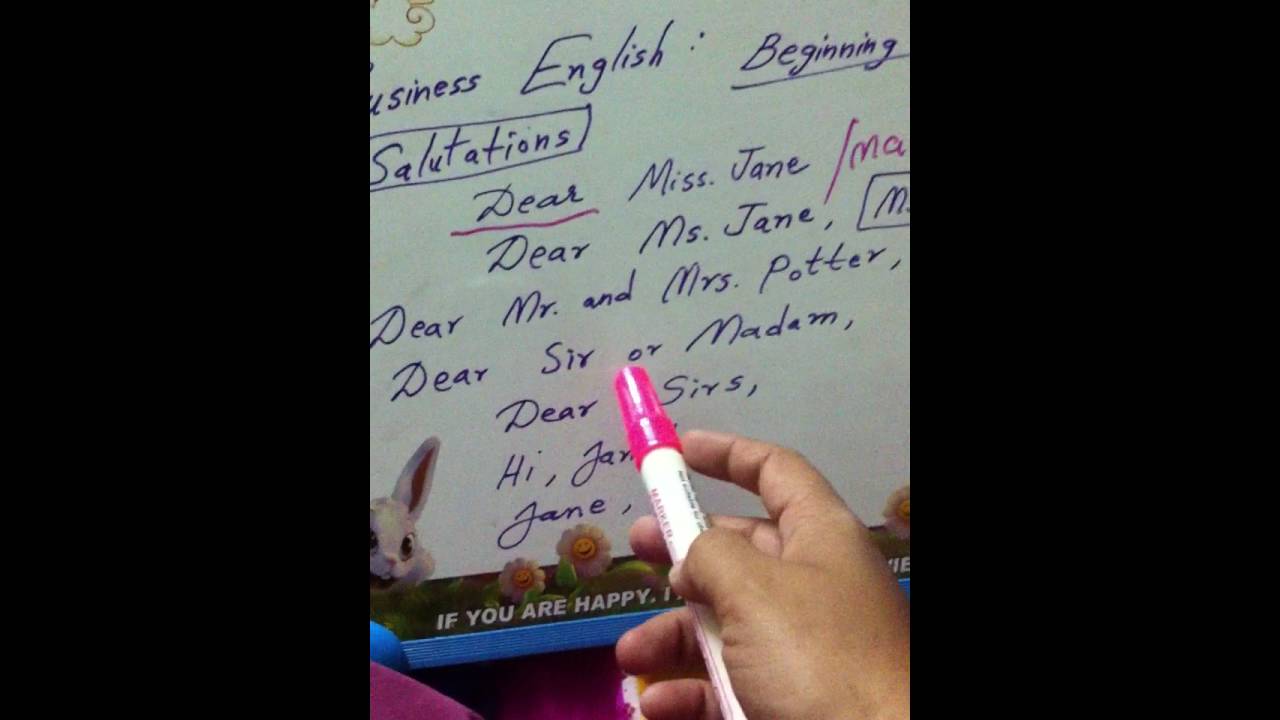 usiness English: Beginning
Salutations
Dear Miss. Jane /Ma
Dear Ms. Jane, M
Dear Mr. and Mrs. Potter,
Dear Sir or Madam,
Dear Sirs,
Hi, Jan
Jane,
IF YOU ARE HAPPY. I
MARKER